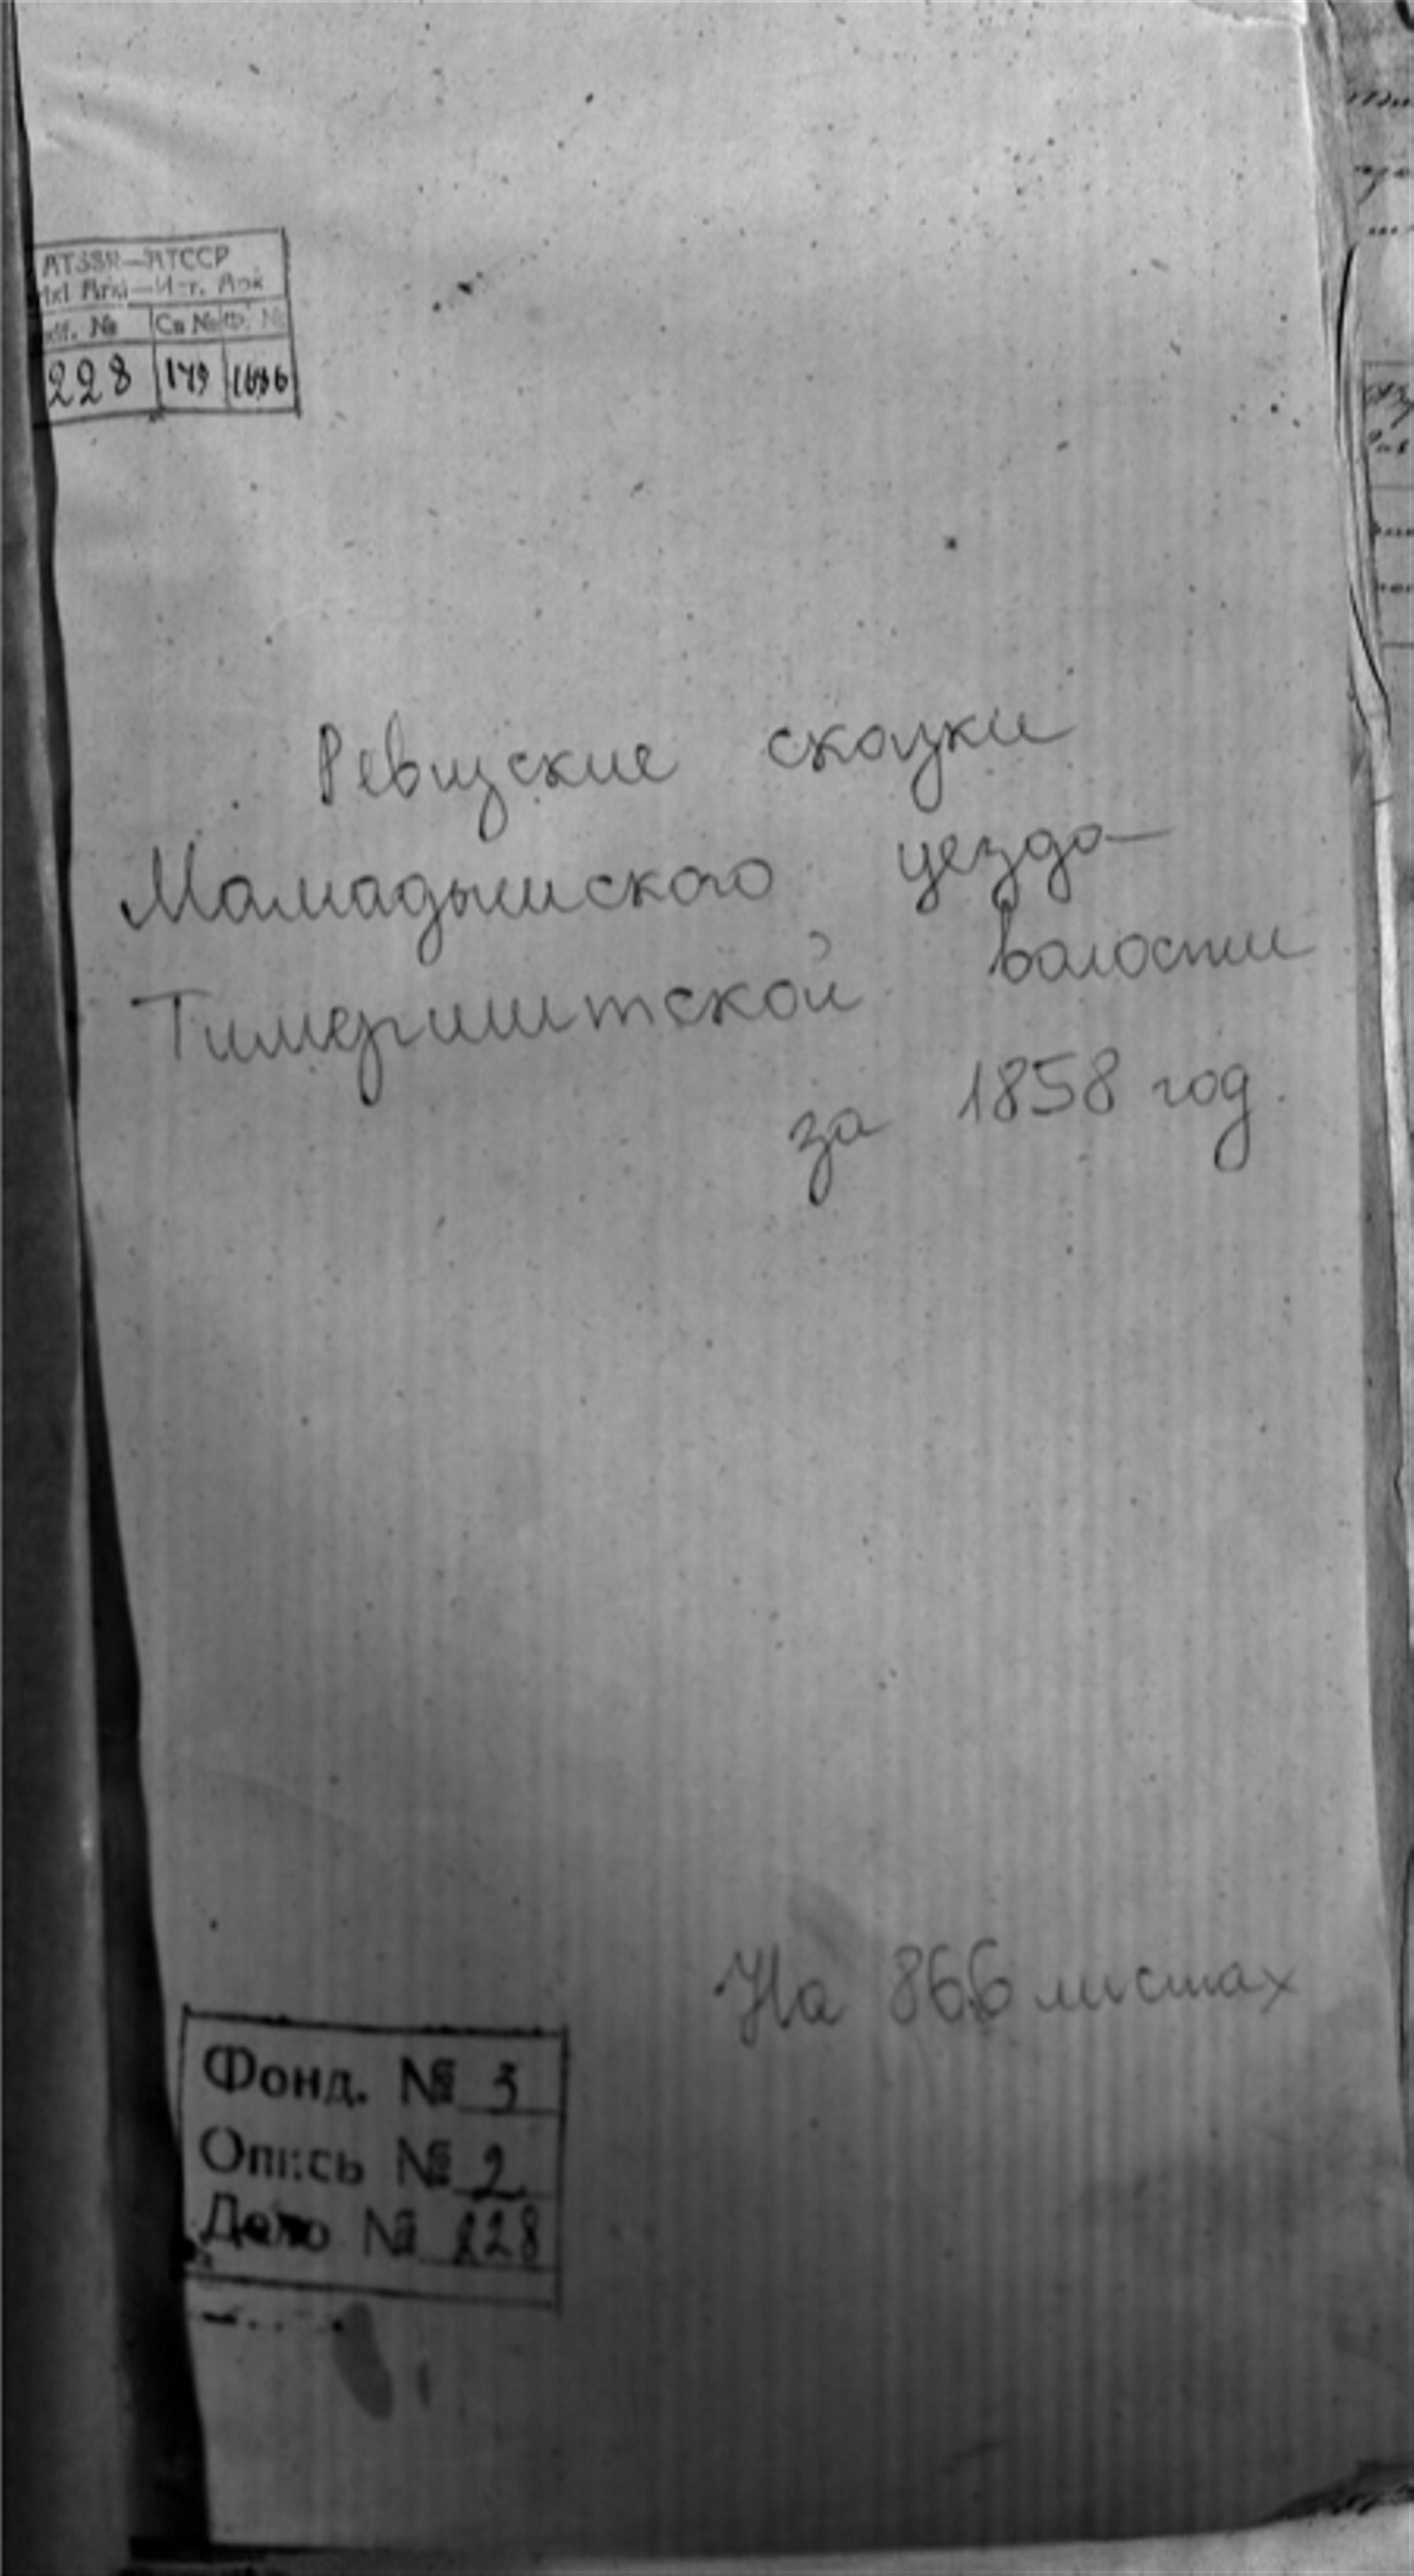 ATSSR—АТССР
Arxi—Ист. Арх.
№ Св № Ф. №
228 179
Ревизские сказки
Мамадышского уезда
Тимершитской волости
за 1858 год.
На 866 листах
Фонд. № 3
Опись № 2
Дело № 228